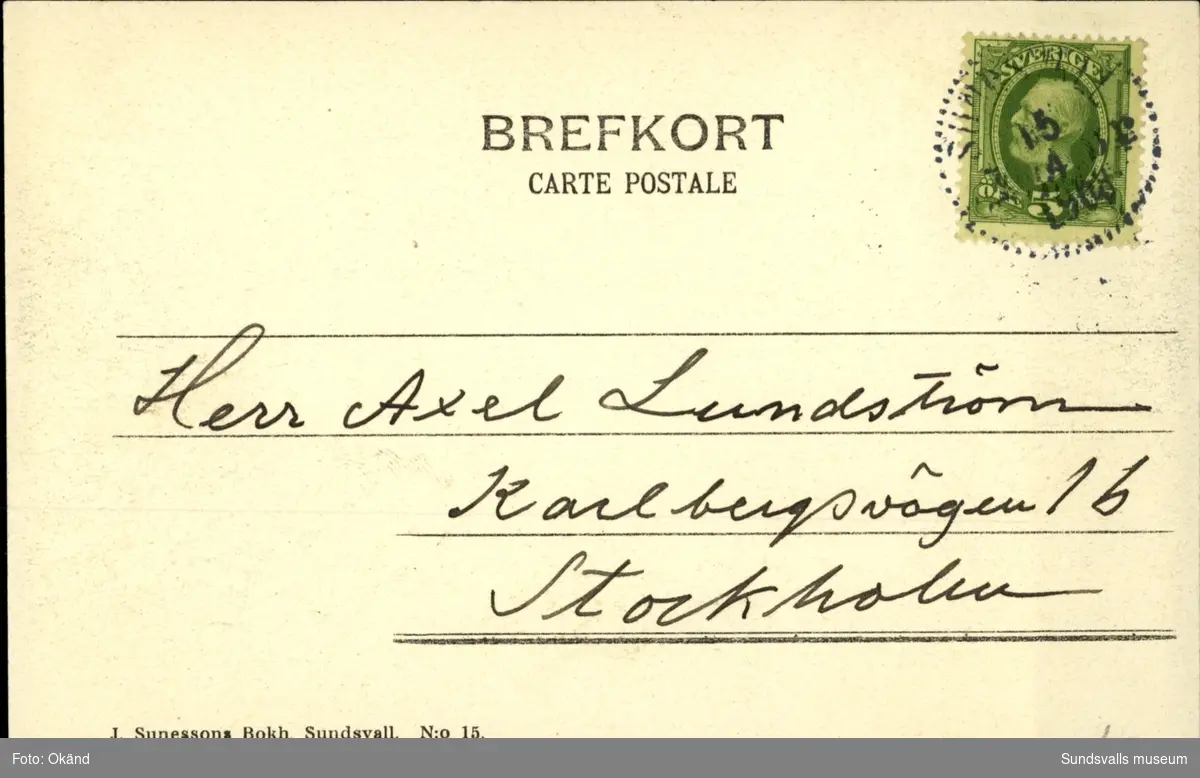 BREFKORT
CARTE POSTALE
SVERIGE
5
15
4
Herr Axel Lundström
Karlbergsvägen 16
Stockholm
J. Sunessons Bokh. Sundsvall. N:o 15.
Foto: Okänd
Sundsvalls museum